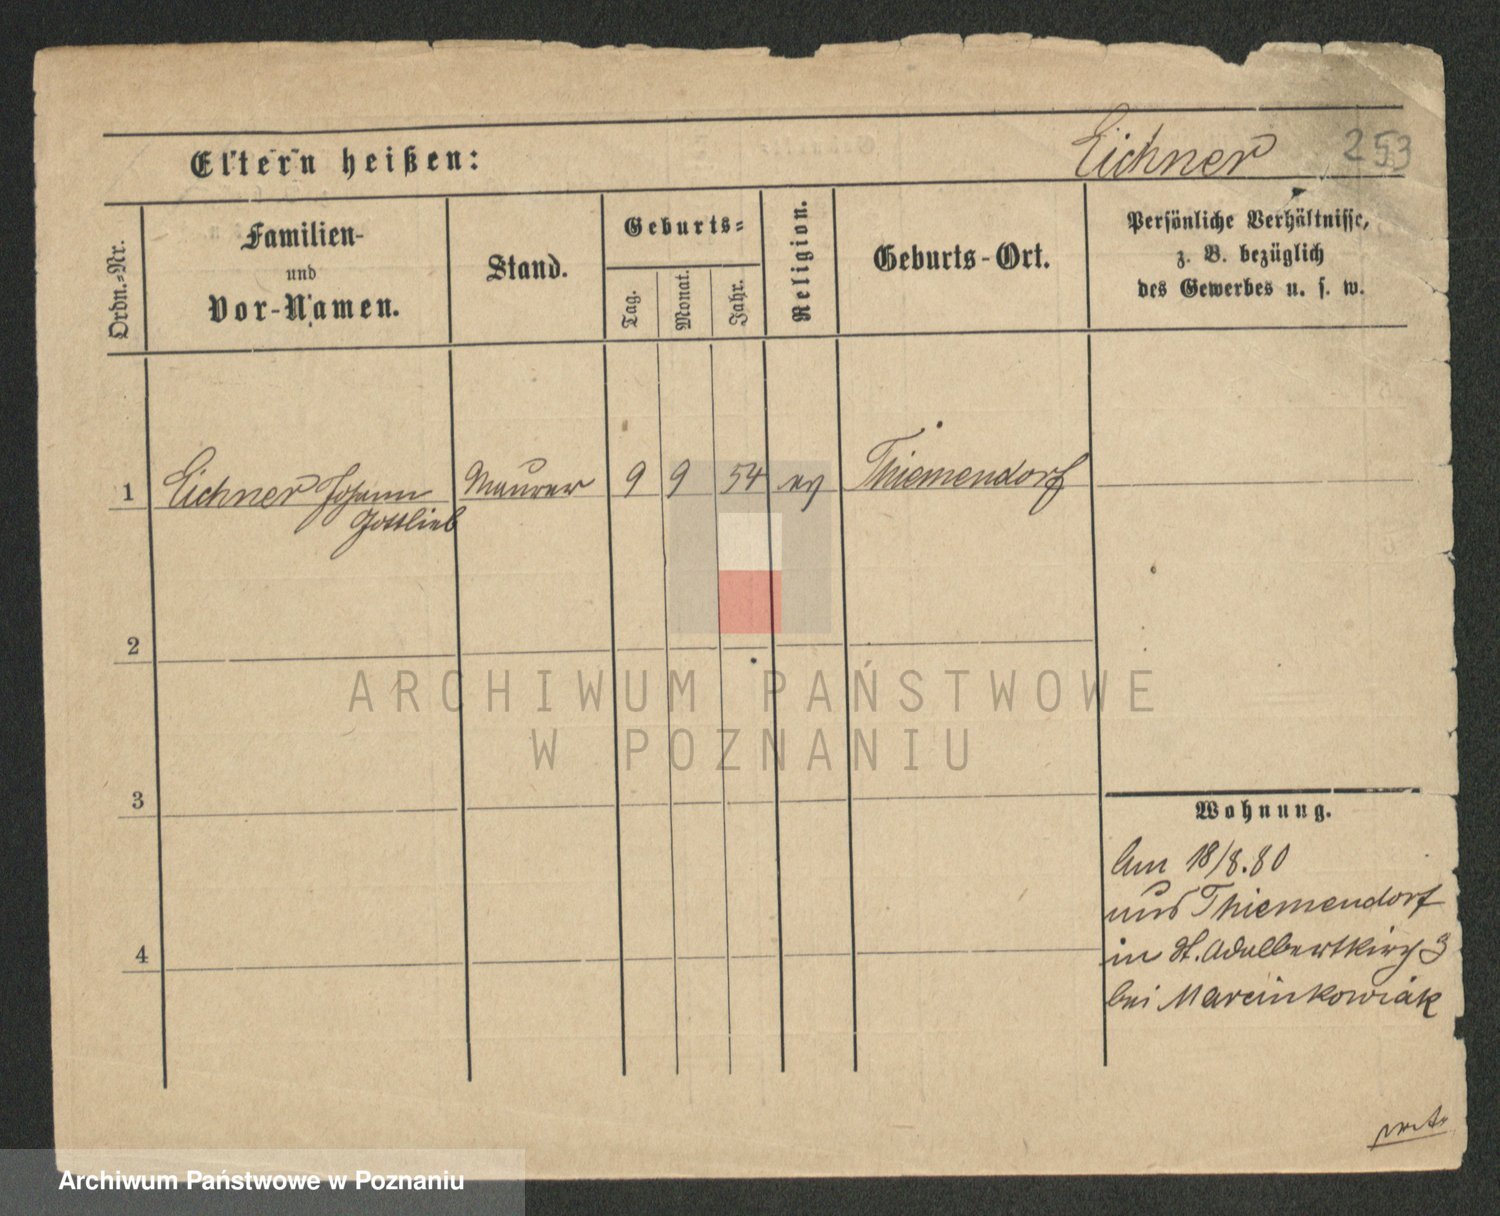 Eltern heißen:
Eichner
253
Ordn.-Nr.
Familien-
und
Vor-Namen.
Stand.
Geburts-
Tag.
Monat.
Jahr.
Religion.
Geburts-Ort.
Persönliche Verhältnisse,
z. B. bezüglich
des Gewerbes u. s. w.
1 Eichner Johann Maurer 9 9 54 ev Thiemendorf
Gottlieb
2
3
4
Wohnung.
Am 18/8.80
aus Thiemendorf
in St. Adalbertkirch 3
bei Marcinkowiak
ARCHIWUM PAŃSTWOWE
W POZNANIU
Archiwum Państwowe w Poznaniu